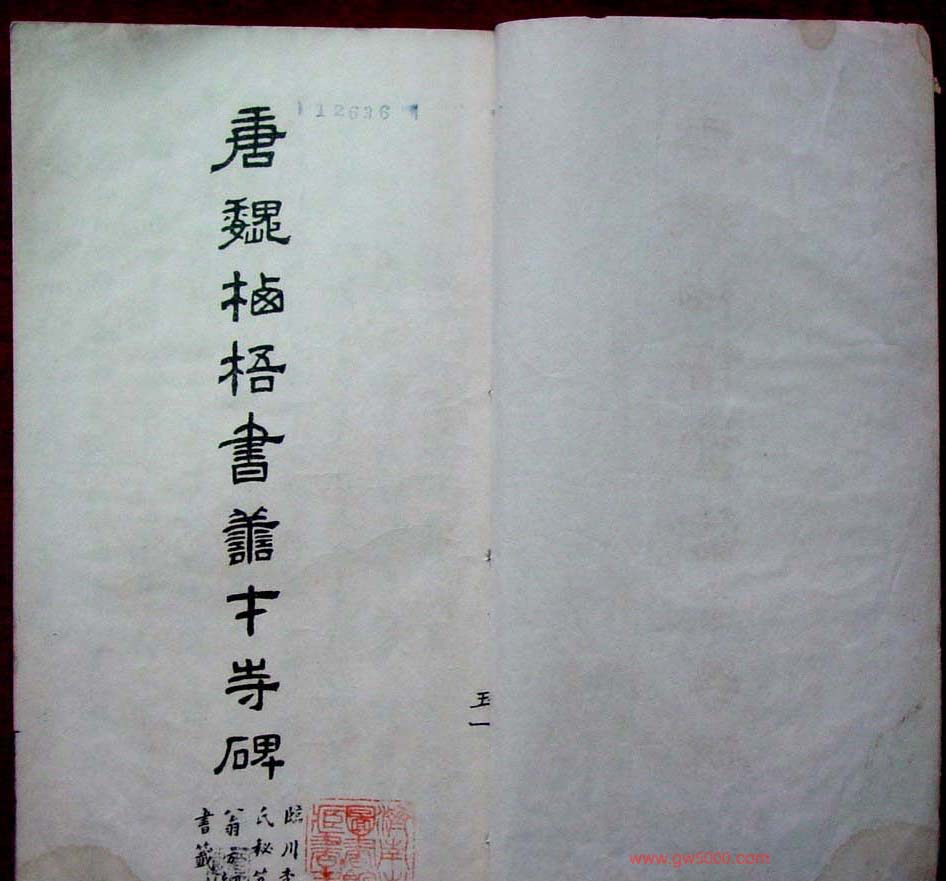 12636
唐魏栖梧書善才寺碑
臨川李
氏秘笈
翁方綱
書籤
玉一
www.gw5000.com